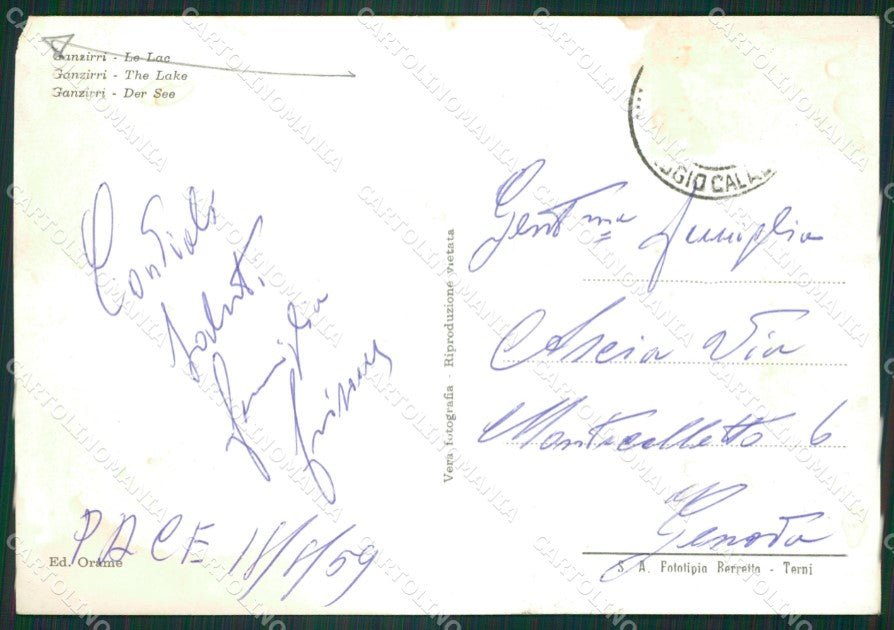 Ganzirri - Le Lac
Ganzirri - The Lake
Ganzirri - Der See
Cordiali
saluti
famiglia
PACE 18/8/59
Ed. Orame
Vera fotografia - Riproduzione vietata
GIO CALA
Gent ma famiglia
Ascia Via
Monticelletto 6
Genova
S. A. Fototipia Berretta - Terni
CARTOLINOMANIA